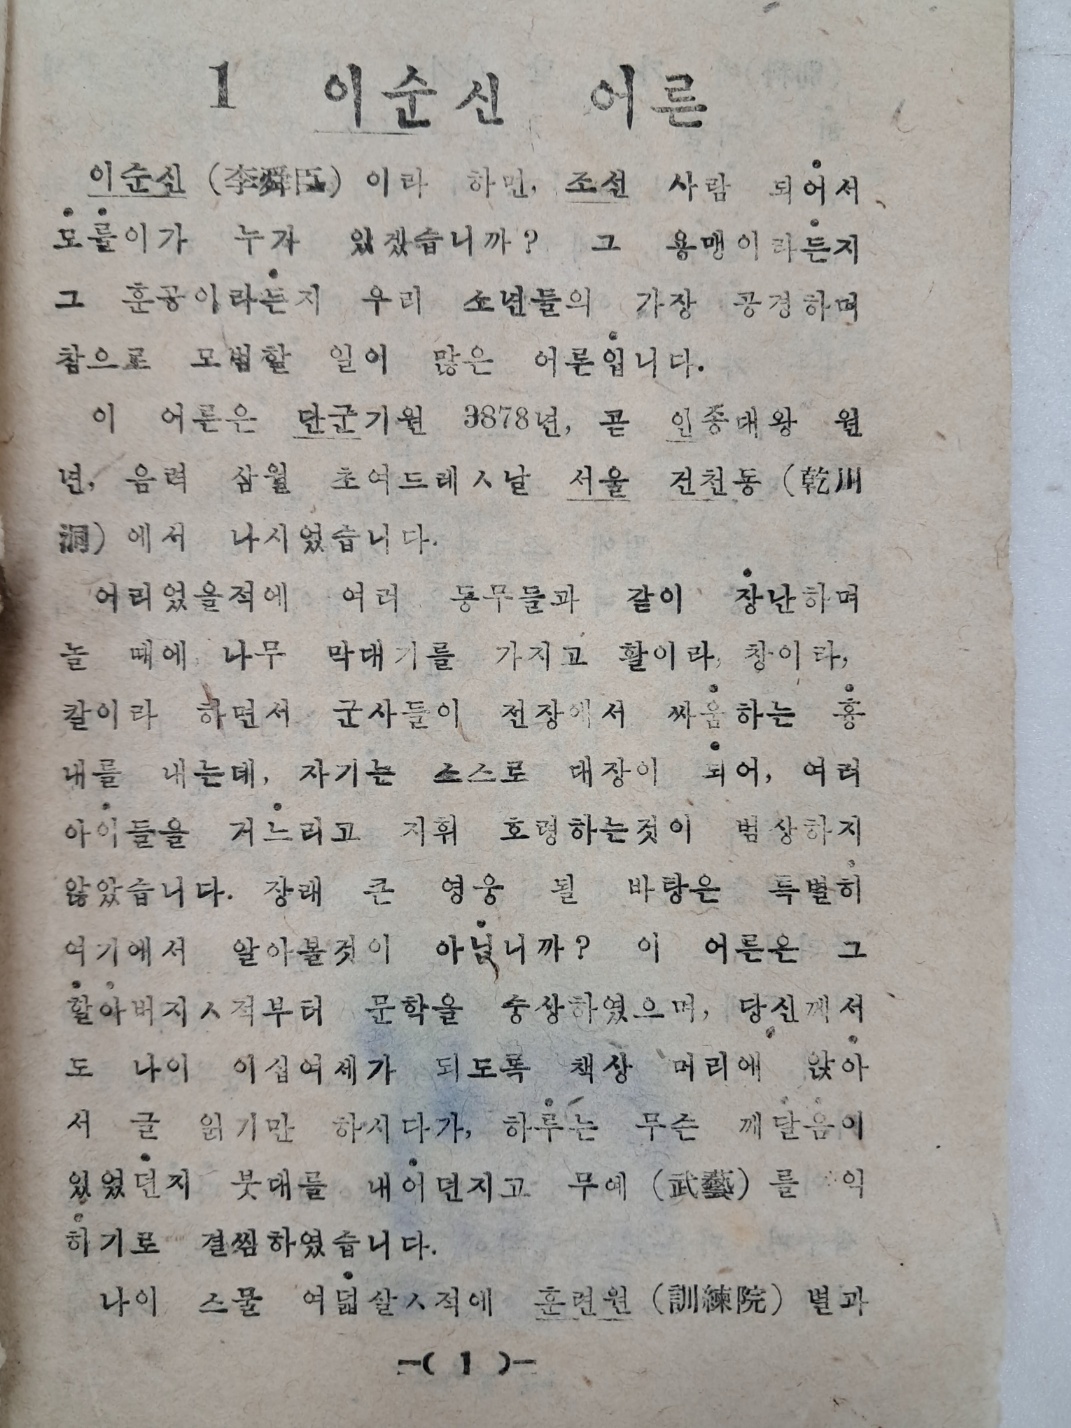 1 이순신 어른
이순신 (李舜臣) 이라 하면, 조선 사람 되어서
모를이가 누가 있겠습니까? 그 용맹이라든지
그 훈공이라든지 우리 소년들의 가장 공경하며
참으로 모범할 일이 많은 어른입니다.
이 어른은 단군기원 3878년, 곧 인종대왕 원
년, 음력 삼월 초여드레ㅅ날 서울 건천동 (乾川
洞) 에서 나시었습니다.
어리었을적에 여러 동무들과 같이 장난하며
놀 때에 나무 막대기를 가지고 활이라, 창이라,
칼이라 하면서 군사들이 전장에서 싸움하는 흉
내를 내는데, 자기는 스스로 대장이 되어, 여러
아이들을 거느리고 지휘 호령하는것이 범상하지
않았습니다. 장래 큰 영웅 될 바탕은 특별히
여기에서 알아볼것이 아닙니까? 이 어른은 그
할아버지ㅅ적부터 문학을 숭상하였으며, 당신께서
도 나이 이십여세가 되도록 책상 머리에 앉아
서 글 읽기만 하시다가, 하루는 무슨 깨달음이
있었던지 붓대를 내어던지고 무예 (武藝) 를 익
히기로 결씸하였습니다.
나이 스물 여덟살ㅅ적에 훈련원 (訓練院) 별과
-( 1 )-